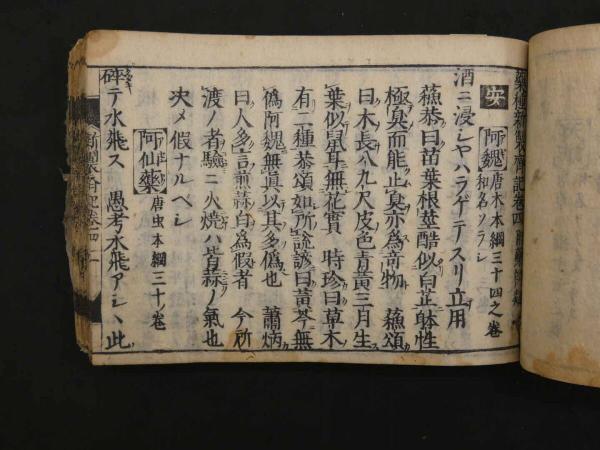 安 阿魏 唐木本綱三十四之巻 和名ソラシ
酒ニ浸シヤハラゲテースリ立用
蘓恭曰苗葉根莖酷似白芷体性
極臭而能止臭亦為奇物 蘓頌
曰木長八九尺皮色青黄三月生
葉似鼠耳無花實 時珍曰草木
有二種恭頌如所說諺曰黄芩無
偽阿魏無真以其多偽也 蕭炳
曰人多言煎蒜白為假者 今所
渡ノ者驗ニ火焼ハ皆蒜ノ氣也
决メ假ナルベシ
阿仙藥 唐虫本綱三十ノ巻
碎テ水飛ス 愚考水飛アシヽ此